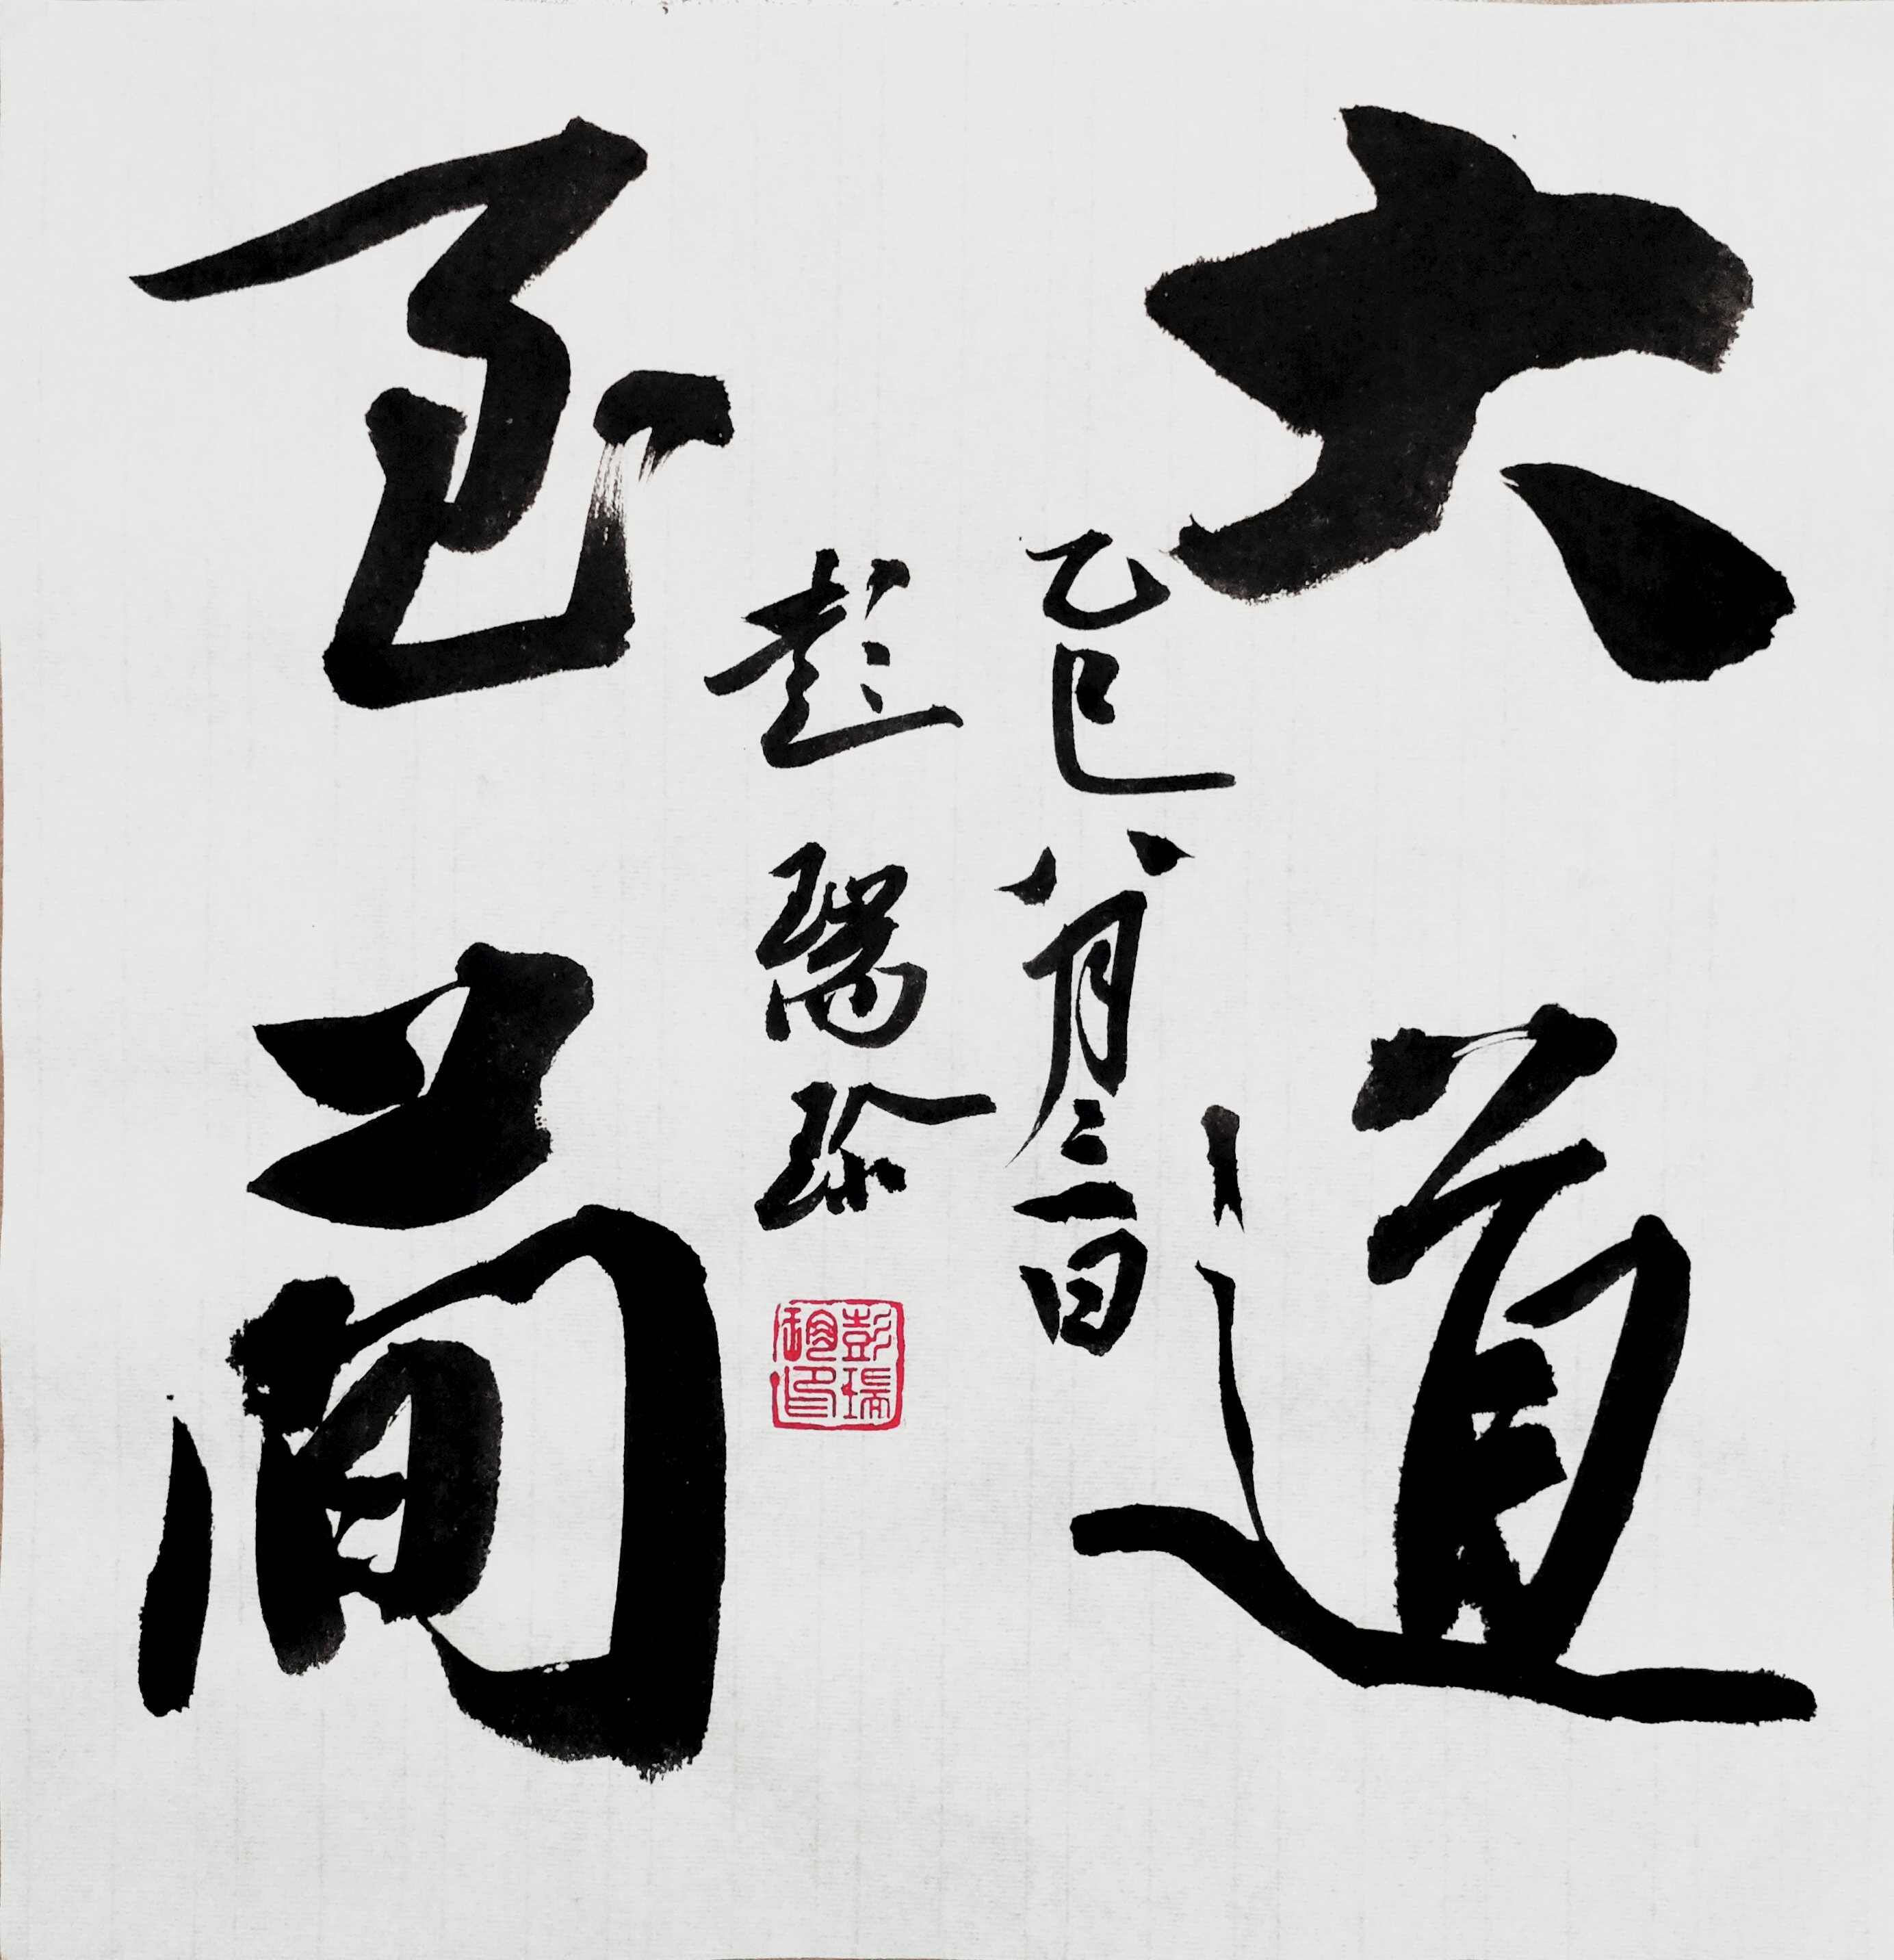 大道
至简
乙巳八月三日
彭瑞珍
彭瑞
珍印